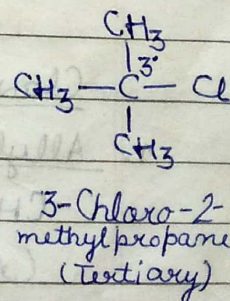 CH3
3°
CH3 — C — Cl
CH3
3-Chloro-2-
methylpropane
(Tertiary)